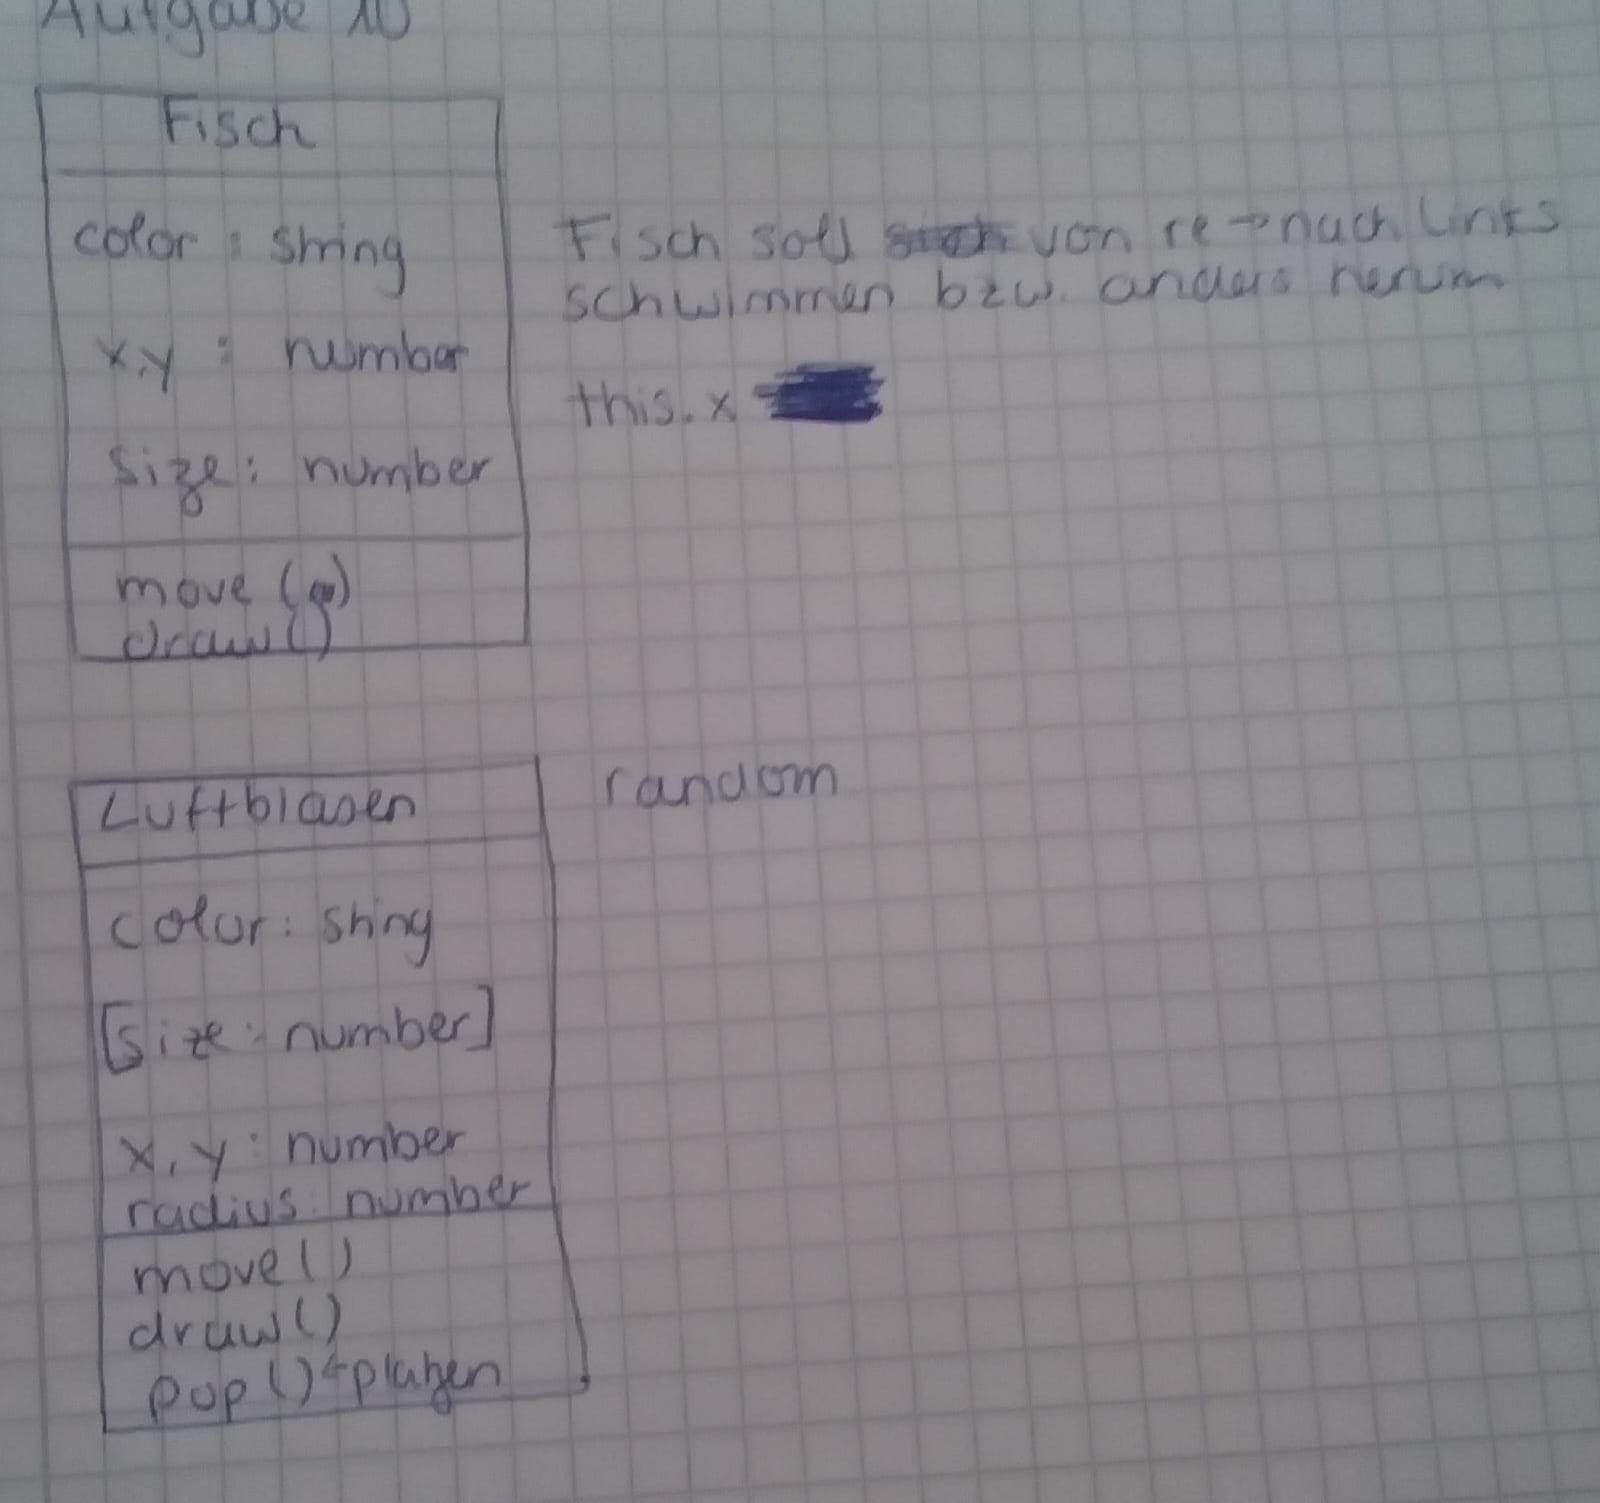 Aufgabe 10
Fisch
color: string
x,y: number
size: number
move ()
draw()
Fisch soll von re → nach links
schwimmen bzw. anders herum
this.x
Luftblasen
random
color: string
[size: number]
x, y: number
radius: number
move()
draw()
pop() ← platzen